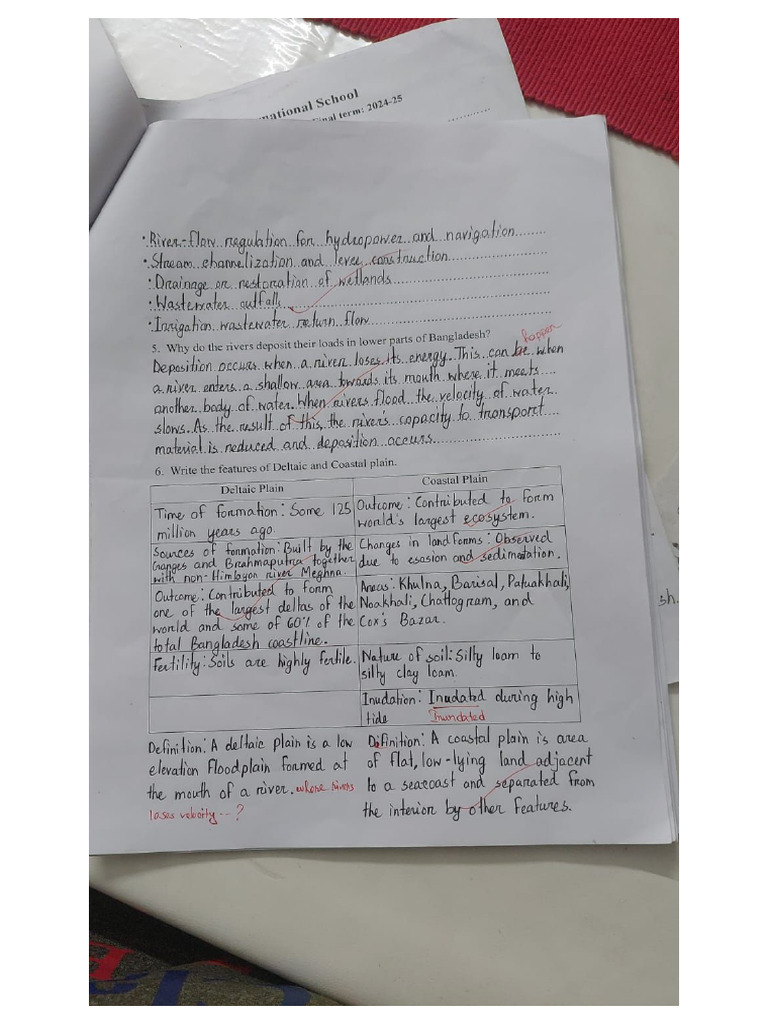 national School
Final term: 2024-25
• River-flow regulation for hydropower and navigation
• Stream channelization and levee construction
• Drainage or restoration of wetlands
• Wastewater outfalls
• Irrigation wastewater return flow
5. Why do the rivers deposit their loads in lower parts of Bangladesh?
happen
Deposition occurs when a river loses its energy. This can be when
a river enters a shallow area towards its mouth where it meets
another body of water. When rivers flood the velocity of water
slows. As the result of this, the river's capacity to transport
material is reduced and deposition occurs.
6. Write the features of Deltaic and Coastal plain.
Deltaic Plain
Coastal Plain
Time of formation: Some 125
million years ago.
Outcome: Contributed to form
world's largest ecosystem.
Sources of formation: Built by the
Ganges and Brahmaputra together
with non-Himlayan river Meghna.
Changes in landforms: Observed
due to erosion and sedimetation.
Outcome: Contributed to form
one of the largest deltas of the
world and some of 60% of the
total Bangladesh coastline.
Areas: Khulna, Barisal, Patuakhali,
Noakhali, Chattogram, and
Cox's Bazar.
Fertility: Soils are highly fertile.
Nature of soil: Silty loam to
silty clay loam.
Inudation: Inudated during high
tide
Inundated
Definition: A deltaic plain is a low
elevation floodplain formed at
the mouth of a river. whose rivers
loses velocity --?
Definition: A coastal plain is area
of flat, low-lying land adjacent
to a seacoast and separated from
the interior by other features.
sh.